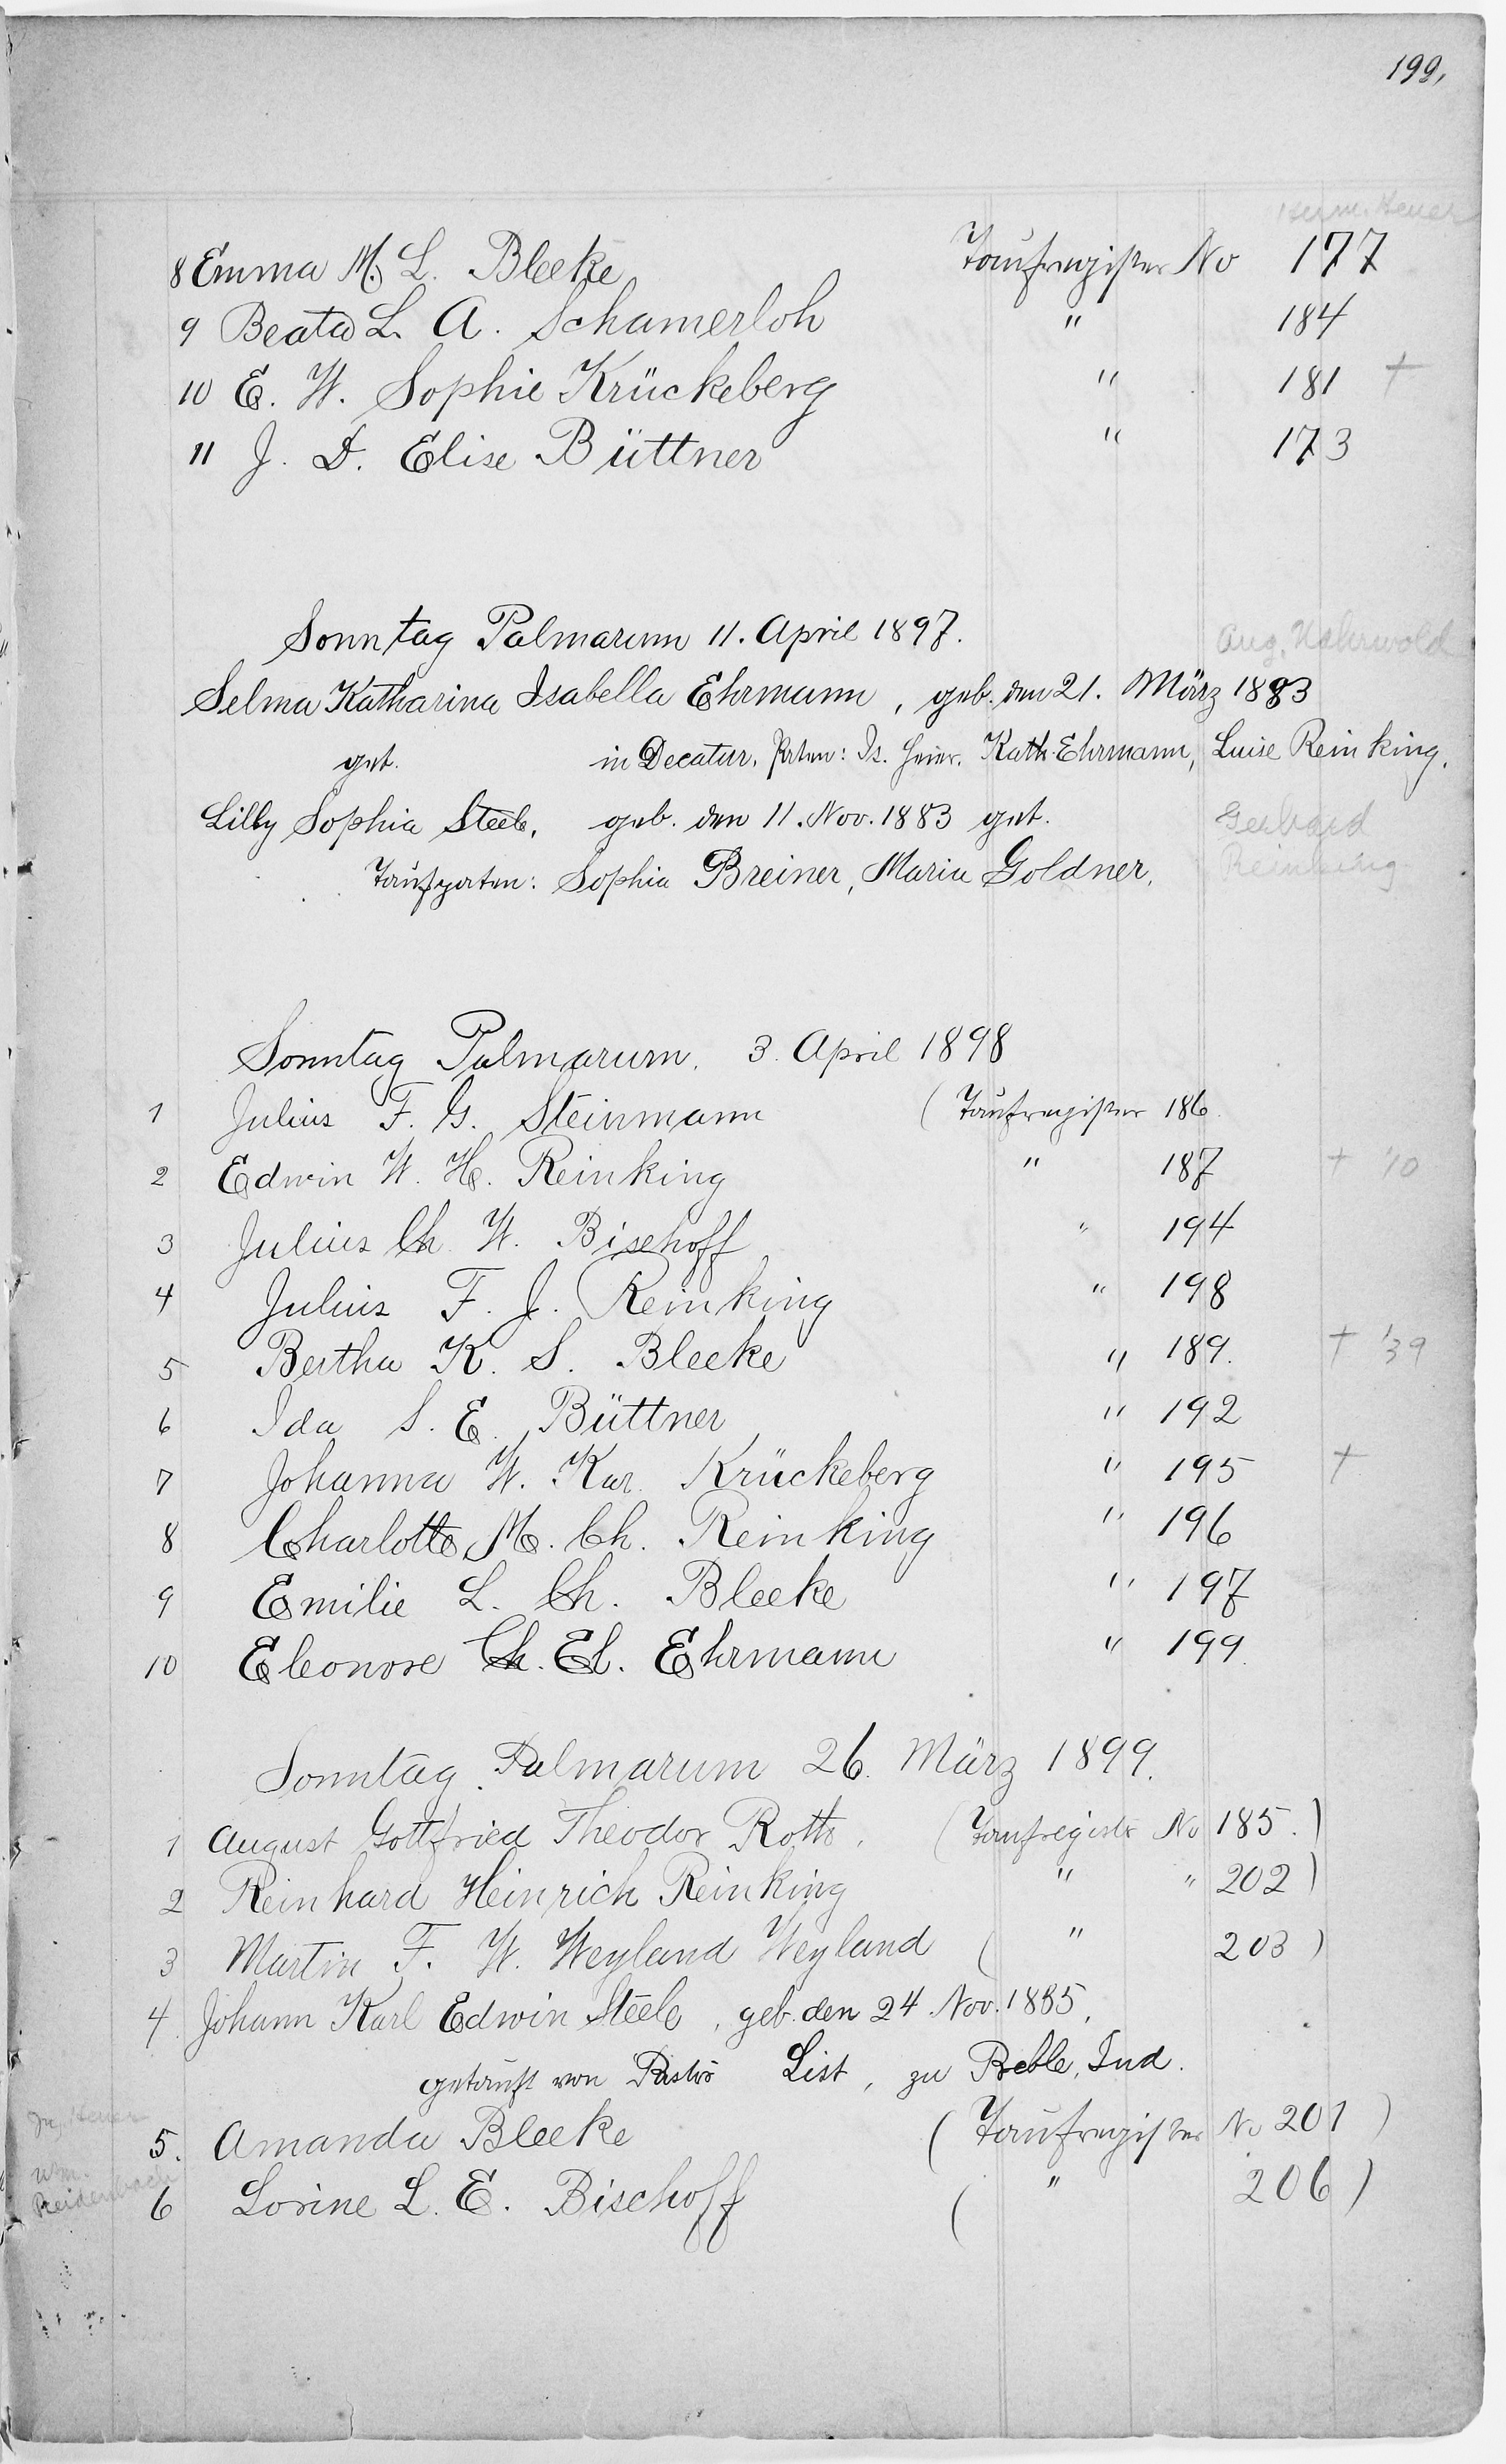 199.
Herm. Heuer
8 Emma M. L. Bleeke Taufregister No 177
9 Beata L. A. Schamerloh " 184
10 E. W. Sophie Krückeberg " 181 +
11 J. D. Elise Büttner " 173
Sonntag Palmarum 11. April 1897.
Aug. Nahrwold
Selma Katharina Isabella Ehrmann, geb. den 21. März 1883
get. in Decatur, Paten: Is. Heier. Kath. Ehrmann, Luise Reinking.
Lilly Sophia Steele, geb. den 11. Nov. 1883 get.
Gerhard
Reinking
Taufpaten: Sophia Breiner, Maria Goldner.
Sonntag Palmarum. 3. April 1898
1 Julius F. G. Steinmann (Taufregister 186.
2 Edwin W. H. Reinking " 187 + '10
3 Julius Ch. W. Bischoff " 194
4 Julius F. J. Reinking " 198
5 Bertha K. S. Bleeke " 189. + '39
6 Ida S. E. Büttner " 192
7 Johanna W. Kar. Krückeberg " 195 +
8 Charlotte M. Ch. Reinking " 196
9 Emilie L. Ch. Bleeke " 197
10 Eleonore Ch. El. Ehrmann " 199.
Sonntag Palmarum 26. März 1899.
1 August Gottfried Theodor Roth. (Taufregistr No 185.)
2 Reinhard Heinrich Reinking " " 202)
3 Martin F. W. Weyland Weyland ( " 203)
4. Johann Karl Edwin Steele, geb. den 24. Nov. 1885,
getauft von Pastor List, zu Preble, Ind.
Heuer
5. Amanda Bleeke (Taufregister No 201)
Wm.
Reidenbach
6 Lorine L. E. Bischoff ( " 206)